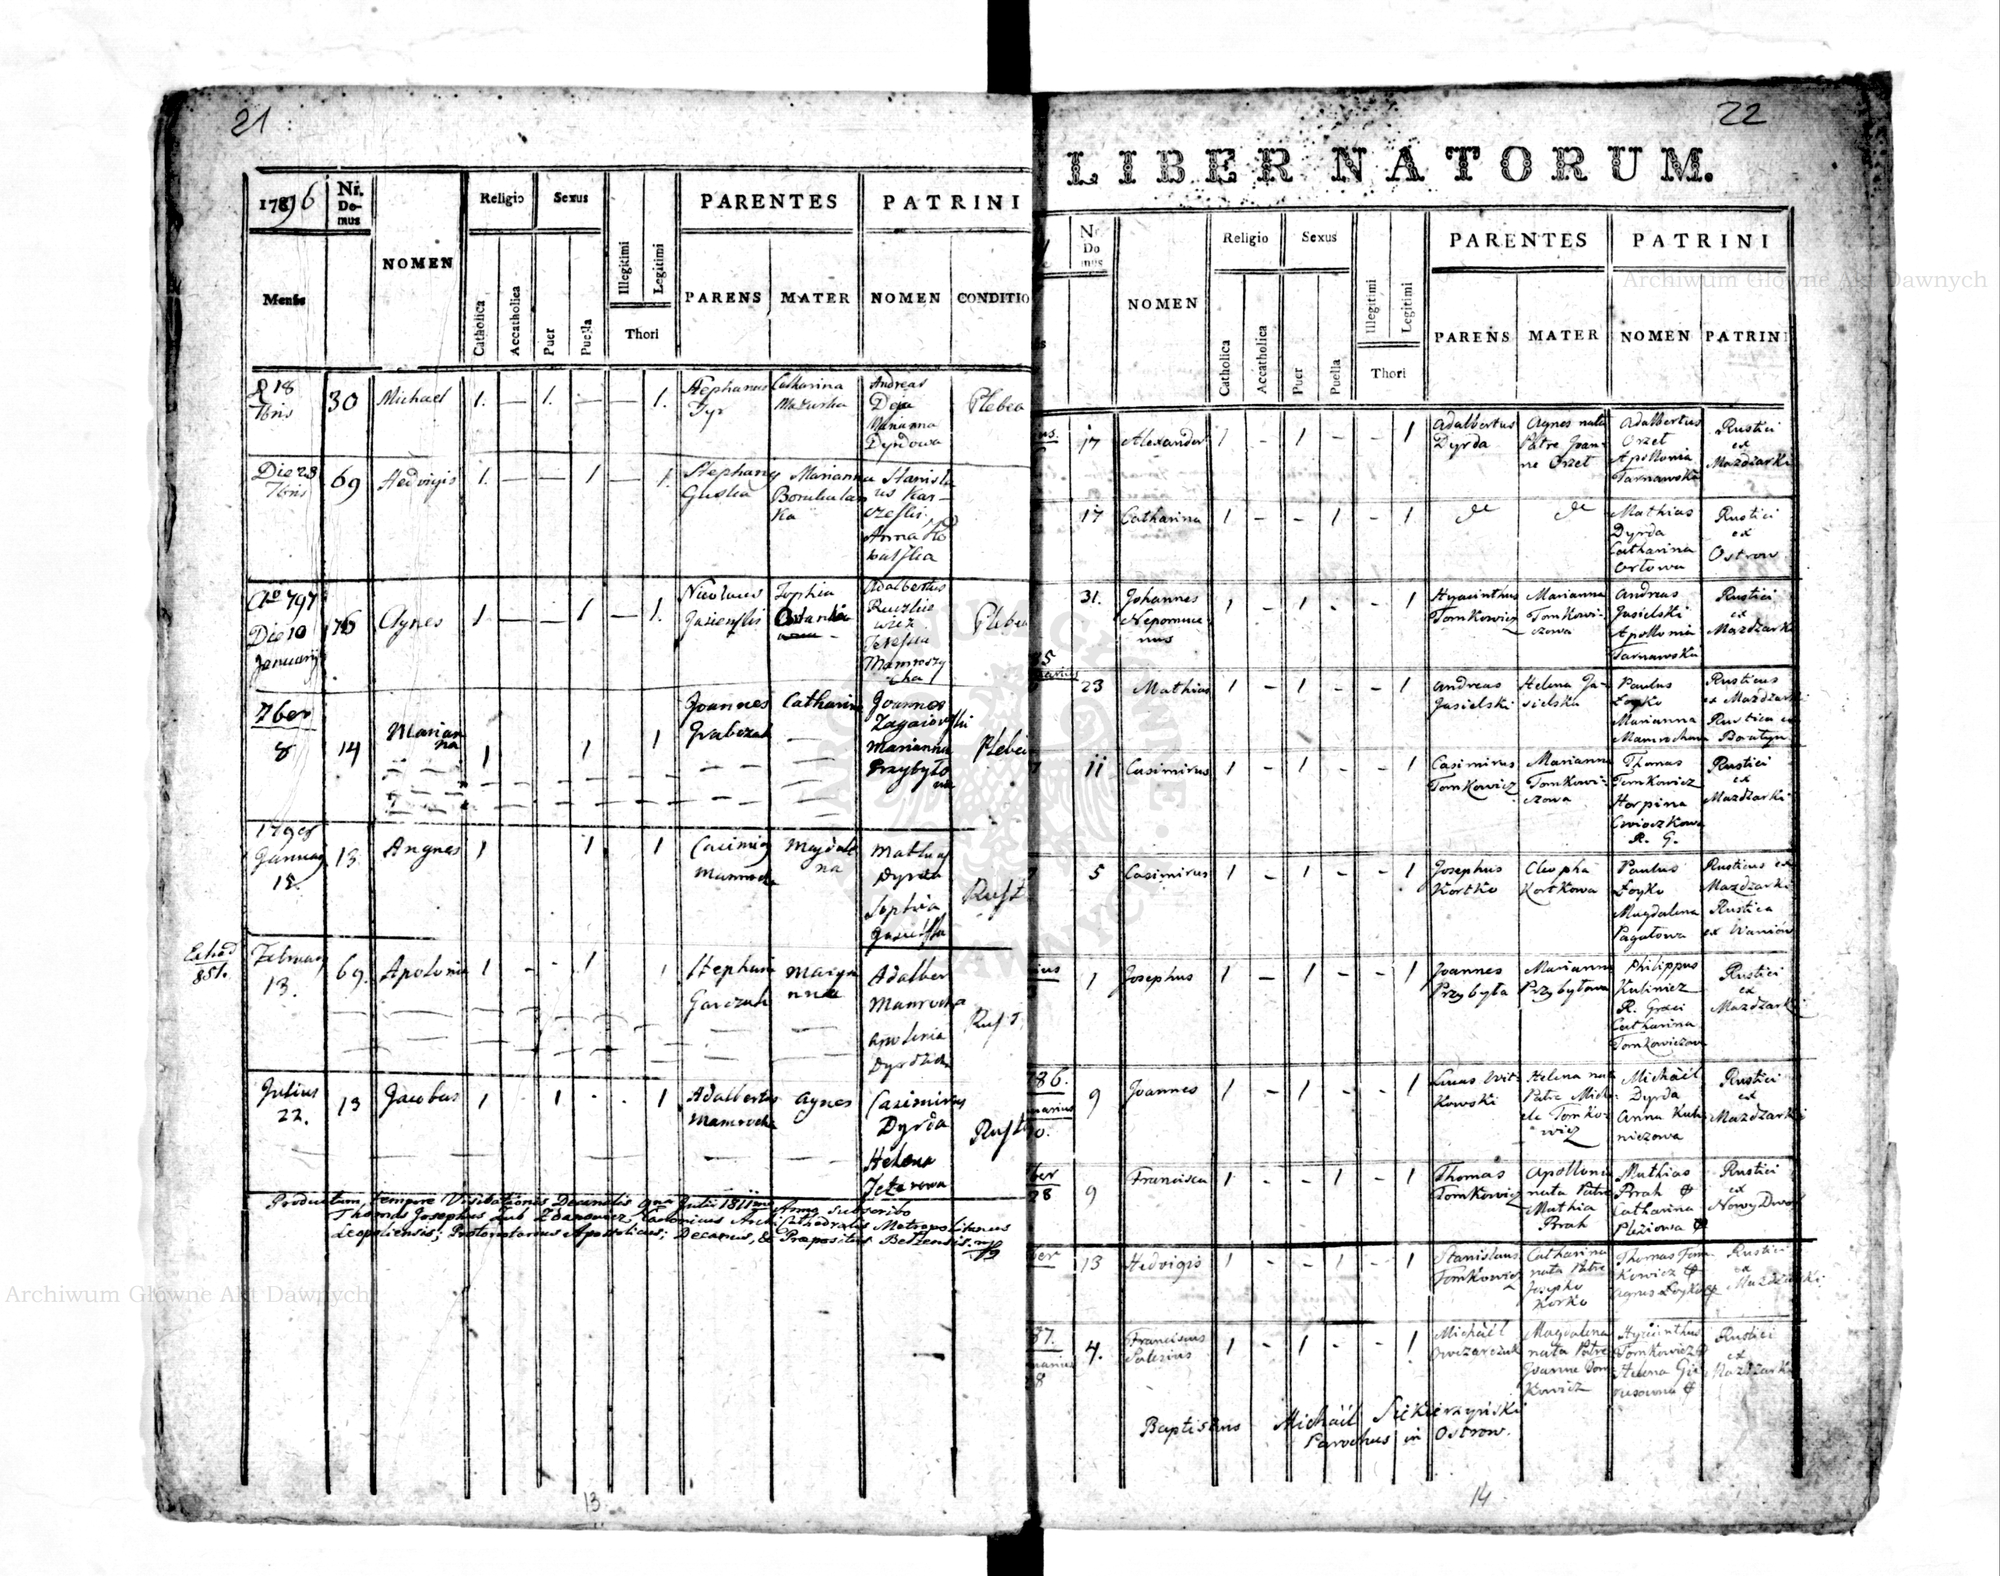 21
1796
Nr. Do- mus
Religio
Sexus
PARENTES
PATRINI
Mensis
NOMEN
Catholica
Accatholica
Puer
Puella
Illegitimi
Legitimi
Thori
PARENS
MATER
NOMEN
CONDITIO
18 7bris
30
Michael
1. — 1. — — 1.
Stephanus
Catharina
Mazurka
Andreas
Deja
Marianna
Dyrdowa
Plebea
Die 23
7bris
69
Hedvigis
1. — — 1 — 1.
Marianna
Stanisla
us Kar-
Anna Ko
walska
Ao 797
Die 10
Januarij
76
Agnes
1 — — 1 — 1.
Nicolaus
Jasienski
Sophia
Adalbertus
Plebea
7ber
8
14
Marian
na
1 1 1
Joannes
Grabczak
Catharina
Joannes
Zagaiewski
Marianna
Przybyło
wa
Plebei
1798
Januar
15.
13.
Angnes
1 1 1
Casimir
Mamrocha
Magdale
na
Mathias
Dyrda
Sophia
Rust
851.
Februar
13.
69.
Apolonia
1 - - 1
Stephan
Garczak
Adalber
Mamrocha
Apolonia
Rust
Julius
22.
13
Jacobus
1 - 1 - - 1
Adalbertus
Mamrocha
Agnes
Casimirus
Dyrda
Helena
Jezerowa
Rust
Productum, tempore Visitationis Decanalis Julii 1811 Anno subscribo
Thomas Josephus Canonicus Archi Cathedralis Metropolitanus
Leopoliensis; Protonotarius Apostolicus; Decanus, & Præpositus Betzensis. mp
13
22
LIBER NATORUM.
Nr Do mus
NOMEN
Religio
Sexus
PARENTES
PATRINI
Catholica
Accatholica
Puer
Puella
Illegitimi
Legitimi
Thori
PARENS
MATER
NOMEN
PATRINI
17
Alexander
1 - 1 - - 1
Adalbertus
Dyrda
Agnes nata
Patre Joan-
ne Orzeł
Adalbertus
Orzeł
Apollonia
Tarnawska
Rustici
ex
Mazdżarki
17
Catharina
1 - - 1 - 1
Mathias
Dyrda
Catharina
Orłowa
Rustici
ex
Ostrow
31.
Johannes
Nepomuce
nus
1 - 1 - - 1
Hyacinthus
Tomkowicz
Marianna
Tomkowi-
czowa
Andreas
Jasielski
Apollonia
Tarnawska
Rustici
ex
Mazdżarki
23
Mathias
1 - 1 - - 1
Andreas
Jasielski
Helena Ja-
sielska
Paulus
Łoyko
Marianna
Mamrochowa
Rusticus
ex Mazdżarki
Rustica ex
Boratyn
11
Casimirus
1 - 1 - - 1
Casimirus
Tomkowicz
Marianna
Tomkowi-
czowa
Thomas
Tomkowicz
Horpina
Cwioczkowa
R. G.
Rustici
ex
Mazdżarki
5
Casimirus
1 - 1 - - 1
Josephus
Kortko
Cleopha
Kortkowa
Paulus
Łoyko
Magdalena
Pagutowa
Rusticus ex
Mazdżarki
Rustica
ex Waniów
1
Josephus
1 - 1 - - 1
Joannes
Przybyła
Marianna
Przybyłowa
Philippus
Kuliniez
R. Graci
Catharina
Tomkowiczowa
Rustici
ex
Mazdżarki
786.
9
Joannes
1 - 1 - - 1
Lucas Wit-
kowski
Helena nata
Patre Micha-
ele Tomko-
wicz
Michäel
Dyrda
Anna Kuli-
niczowa
Rustici
ex
Mazdżarki
ber
28
9
Francisca
1 - - 1 - 1
Thomas
Tomkowicz
Apollonia
nata Patre
Mathia
Prah
Mathias
Prah
Catharina
Rustici
ex
Nowy Dwor
ber
13
Hedvigis
1 - - 1 - 1
Stanislaus
Tomkowicz
Catharina
nata Patre
Josepho
Korko
Thomas Tom-
kowicz
Agnes Łoyko
Rustici
ex
Mazdżarki
87.
8
4.
Franciscus
Salesius
1 - 1 - - 1
Michäel
Owczarczuk
Magdalena
nata Patre
Joanne Tom-
kowicz
Hyacinthus
Tomkowicz
Helena
Rustici
ex
Mazdżarki
Baptisans Michäel Siekierzyński
Parochus in Ostrow.
14
Archiwum Główne Akt Dawnych
Archiwum Główne Akt Dawnych